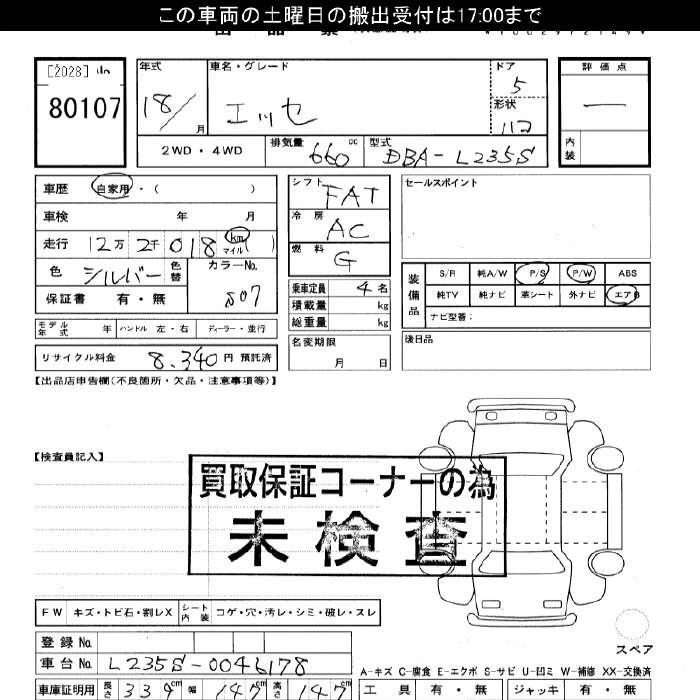 この車両の土曜日の搬出受付は17:00まで
[2028]
80107
年式 車名・グレード ドア 評価点
18/ 月 エッセ 5
形状
112
内装
2WD・4WD 排気量 660 cc 型式 DBA-L235S
車歴 自家用・( )
車検 年 月
走行 12万 2千 018 km マイル ( )
色 シルバー 色替 カラーNo.
S07
保証書 有・無
モデル年式 年 ハンドル 左・右 ディーラー・並行
リサイクル料金 8,340 円 預託済
シフト FAT
冷房 AC
燃料 G
乗車定員 4名
積載量 kg
総重量 kg
名変期限
月 日
セールスポイント
装備品 S/R 純A/W P/S P/W ABS
純TV 純ナビ 革シート 外ナビ エアB
ナビ型番:
後日品
【出品店申告欄(不良箇所・欠品・注意事項等)】
【検査員記入】
買取保証コーナーの為
未検査
FW キズ・トビ石・割レX シート内装 コゲ・穴・汚レ・シミ・破レ・スレ
スペア
登録No.
車台No. L235S-0046178
A-キズ C-腐食 E-エクボ S-サビ U-凹ミ W-補修 XX-交換済
車庫証明用 長さ 339cm 幅 147cm 高さ 147cm
工具 有・無 ジャッキ 有・無